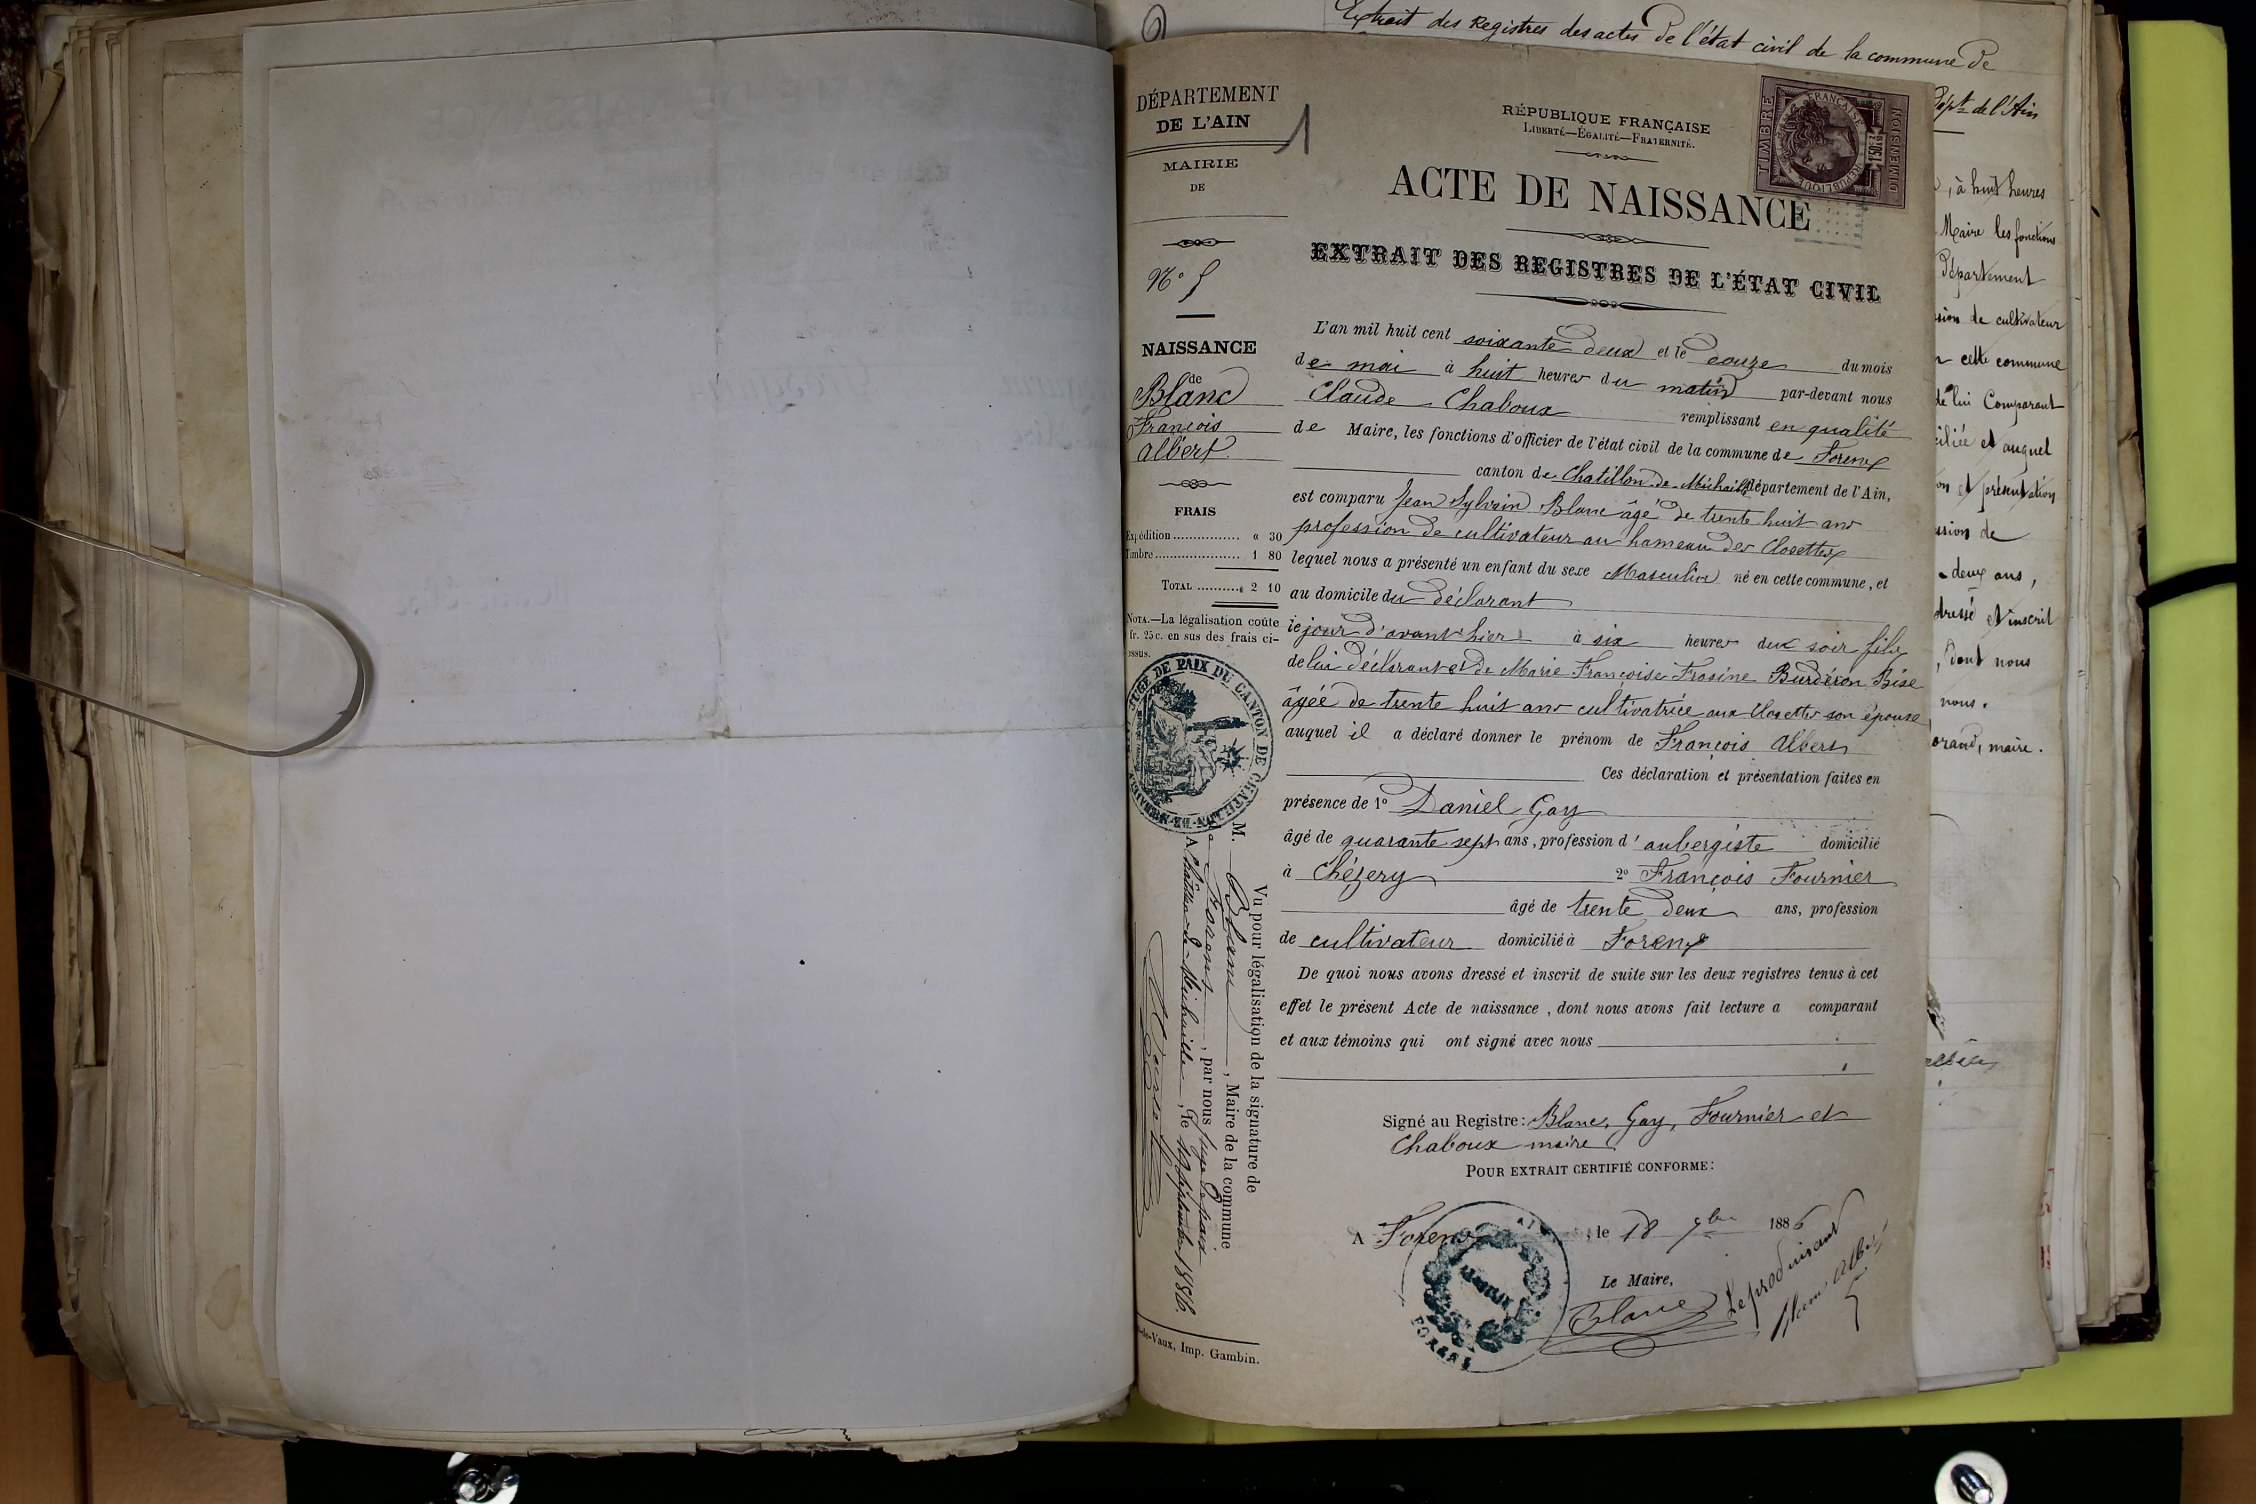 Extrait des Registres des actes de l'état civil de la commune de
Dépt de l'Ain
, à huit heures
Maire les fonctions
Département
sion de cultivateur
cette commune
de lui Comparant
ciliée et auquel
on et présentation
ssion de
deux ans,
dressé et inscrit
, dont nous
nous.
orand, maire.
DÉPARTEMENT
DE L'AIN
1
MAIRIE
DE
N° 5
NAISSANCE
de
Blanc
François
Albert
FRAIS
Expédition ................ « 30
Timbre .................... 1 80
TOTAL .......... 2 10
NOTA.—La légalisation coûte
fr. 25 c. en sus des frais ci-
essus.
JUGE DE PAIX DU CANTON DE CHATILLON-DE-MICHAILLE
Vu pour légalisation de la signature de
M. Blanc, Maire de la commune
de Forens, par nous Juge de paix
A Châtillon-de-Michaille, le 19 septembre 1886.
-de-Vaux, Imp. Gambin.
RÉPUBLIQUE FRANÇAISE
LIBERTÉ—ÉGALITÉ—FRATERNITÉ.
TIMBRE
RÉPUBLIQUE FRANÇAISE
DIMENSION
ACTE DE NAISSANCE
EXTRAIT DES REGISTRES DE L'ÉTAT CIVIL
L'an mil huit cent soixante deux et le douze du mois
de mai à huit heures du matin par-devant nous
Claude Chaboux remplissant en qualité
de Maire, les fonctions d'officier de l'état civil de la commune de Forens
canton de Chatillon de Michaille département de l'Ain,
est comparu Jean Sylvain Blanc âgé de trente huit ans
profession de cultivateur au hameau des Closettes
lequel nous a présenté un enfant du sexe Masculin né en cette commune, et
au domicile du déclarant
le jour d'avant hier à six heures du soir fils
de lui déclarant et de Marie Françoise Frosine Burdéron Bise
âgée de trente huit ans cultivatrice aux Closettes son épouse
auquel il a déclaré donner le prénom de François Albert
Ces déclaration et présentation faites en
présence de 1° Daniel Gay
âgé de quarante sept ans, profession d'aubergiste domicilié
à Chézery 2° François Fournier
âgé de trente deux ans, profession
de cultivateur domicilié à Forens
De quoi nous avons dressé et inscrit de suite sur les deux registres tenus à cet
effet le présent Acte de naissance, dont nous avons fait lecture a comparant
et aux témoins qui ont signé avec nous
Signé au Registre: Blanc, Gay, Fournier et
Chaboux maire
POUR EXTRAIT CERTIFIÉ CONFORME:
A Forens, le 18 7bre 1886
Le Maire,
Blanc
Le produisant
Blanc Albert
FORENS